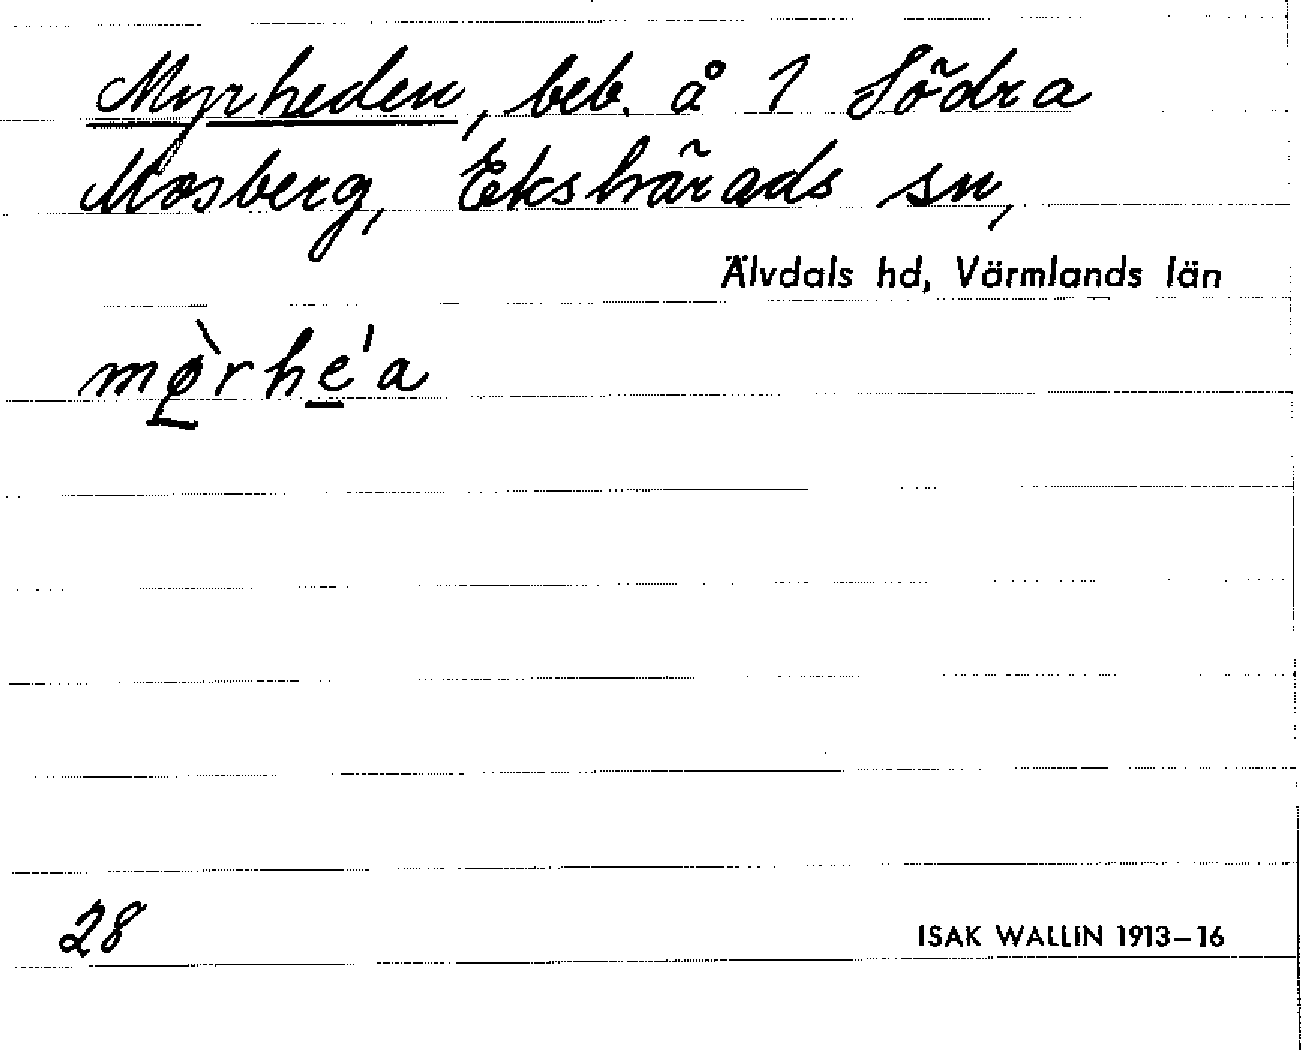 Myrheden, beb. å 1 Södra
Mosberg, Ekshärads sn,
Älvdals hd, Värmlands län
mø̀rhe'a
28
ISAK WALLIN 1913–16